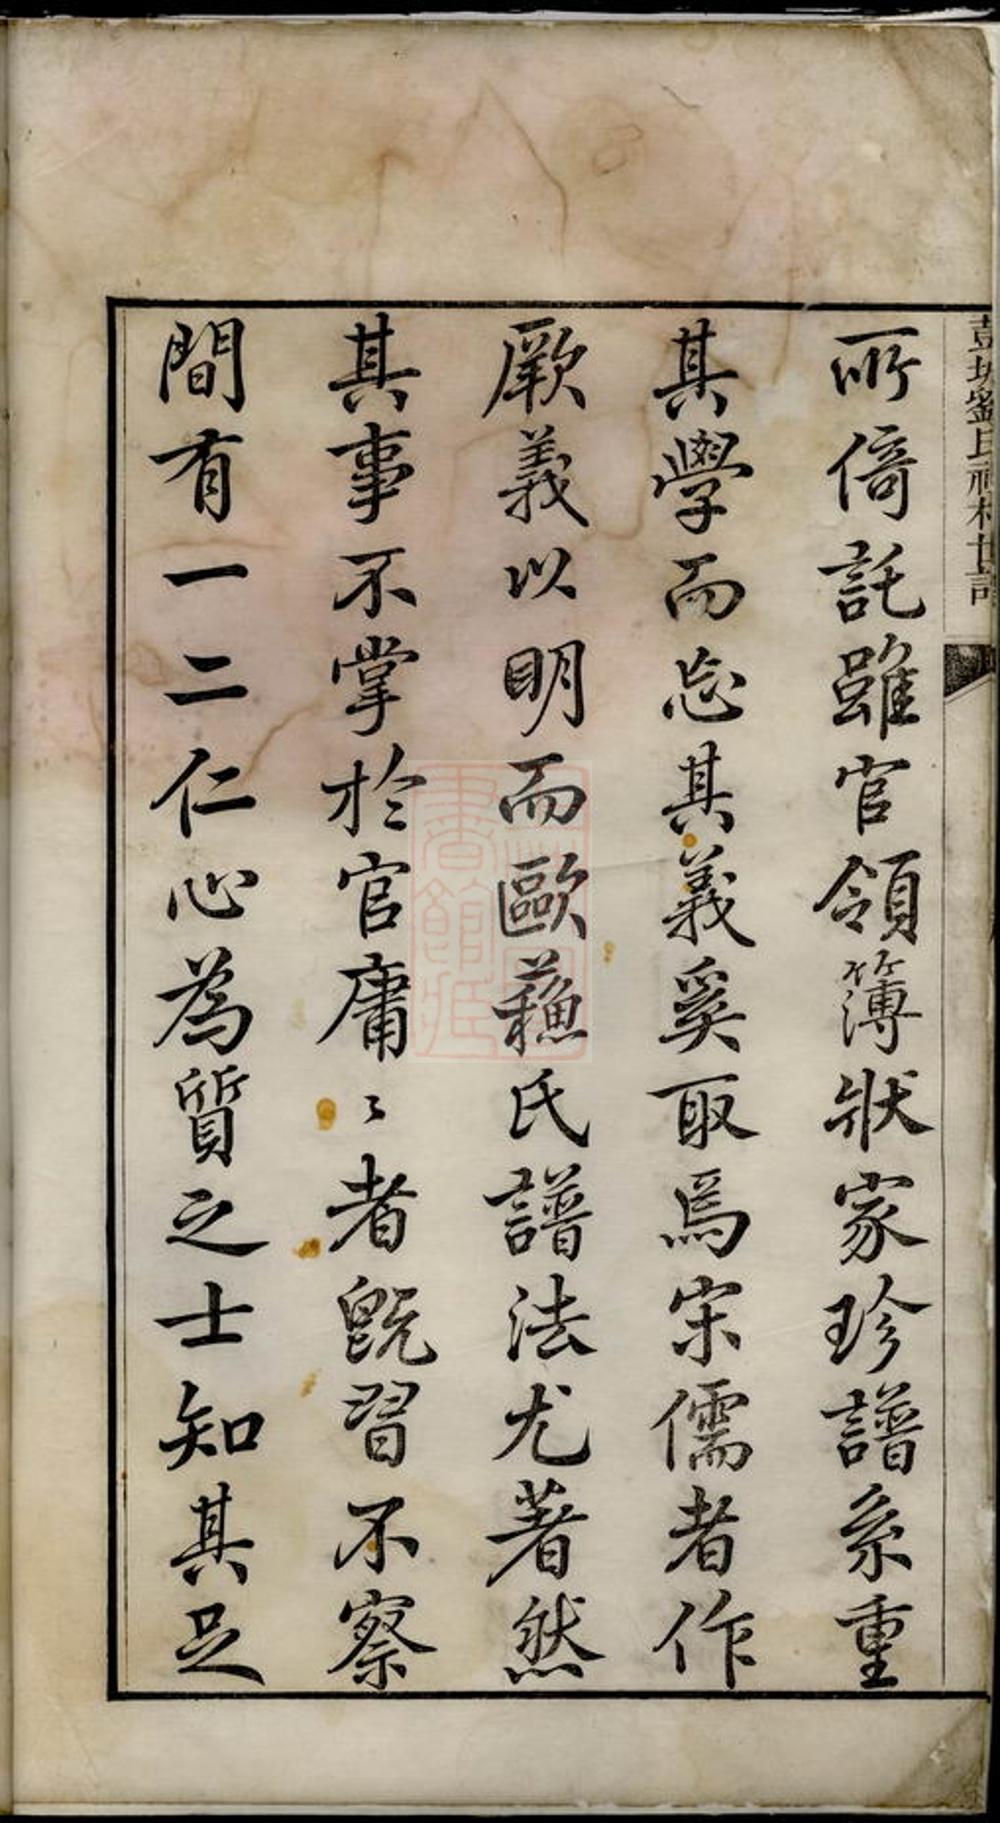 彭城劉氏祠樓世譜
所倚託雖官領簿狀家珍譜系重
其學而忘其義奚取焉宋儒者作
厥義以明而歐蘓氏譜法尤著然
其事不掌於官庸〻者旣習不察
間有一二仁心為質之士知其足